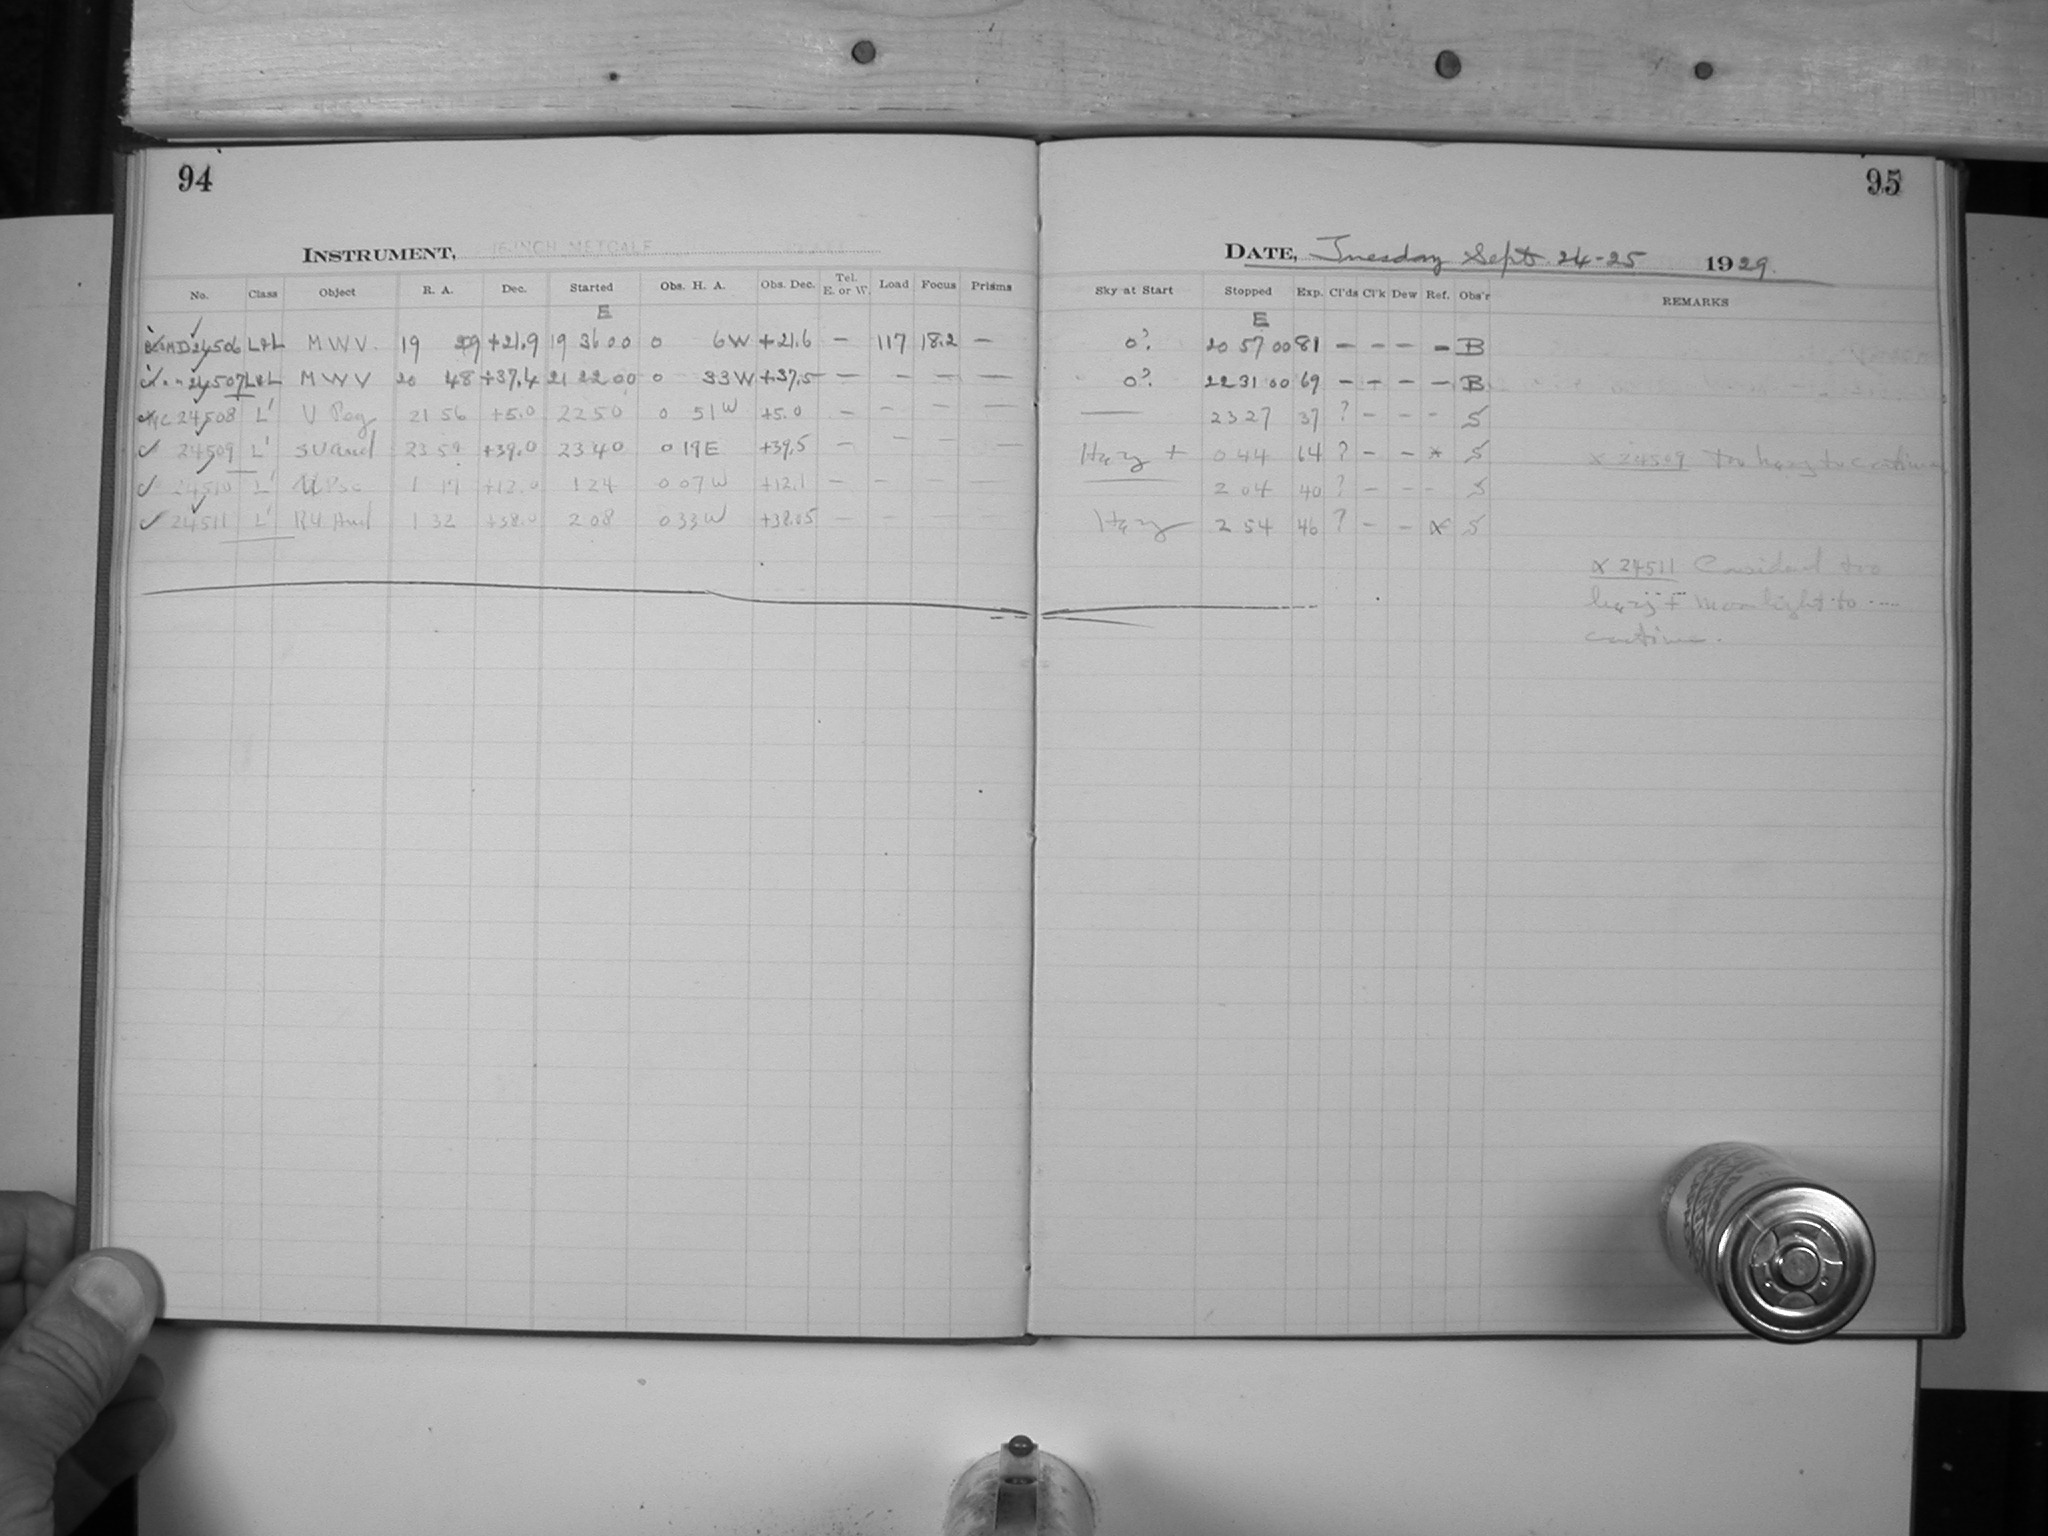 94
95
INSTRUMENT, 16-INCH METCALF
DATE, Tuesday Sept. 24-25 1929.
No. Class Object R. A. Dec. Started Obs. H. A. Obs. Dec. Tel. E. or W. Load Focus Prisms Sky at Start Stopped Exp. Cl'ds Cl'k Dew Ref. Obs'r REMARKS
E E
MD 24506 L+L MWV. 19 29 +21.9 19 36 00 0 6W +21.6 — 117 18.2 — 0?. 20 57 00 81 — — — — B
" " 24507 L+L MWV 20 48 +37.4 21 22 00 0 33W +37.5 — — — — 0?. 22 31 00 69 — — — — B
MC 24508 L' V Peg 21 56 +5.0 22 50 0 51W +5.0 — — — — — 23 27 37 ? — — — S
24509 L' SU And 23 59 +39.0 23 40 0 19E +39.5 — — — — Hazy + 0 44 64 ? — — * S x 24509 too hazy to continue
24510 L' 1 24 0 07W +12.1 — — — — — 2 04 40 ? — — — S
24511 L' RU And 1 32 +38.0 2 08 0 33W +38.05 — — — — Hazy 2 54 46 ? — — x S
x 24511 Considered too
hazy + Moonlight to
continue.